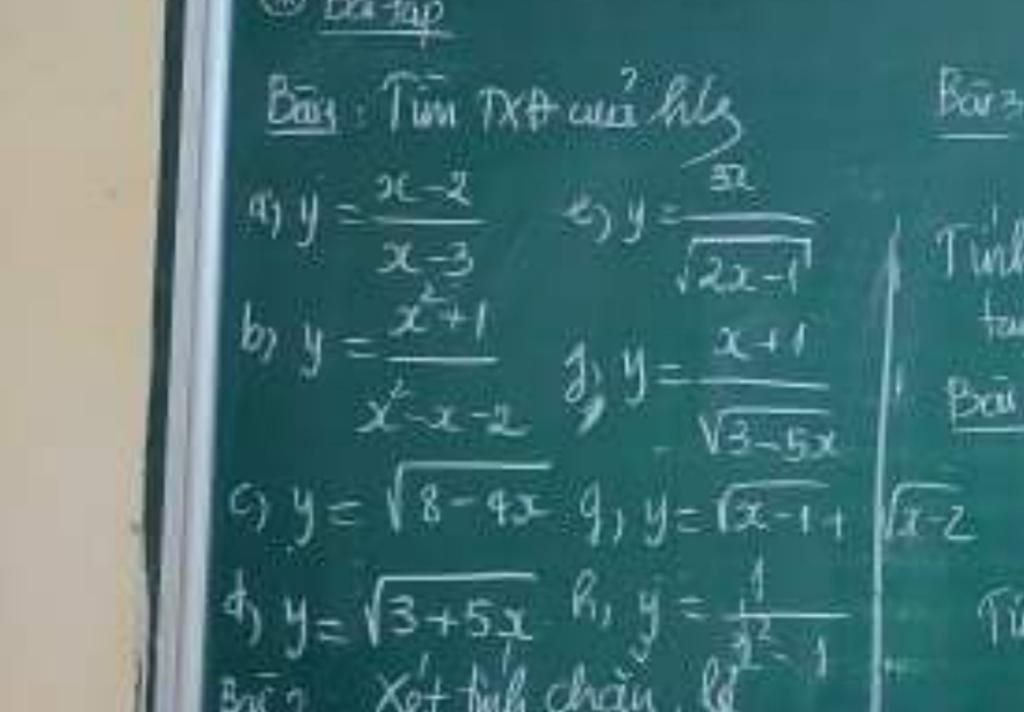 Bài tập
Bài 1: Tìm TXĐ của h/s
a, y = (x-2)/(x-3)
e, y = 3x/√(2x-1)
b, y = (x²+1)/(x²-x-2)
f, y = (x+1)/√(3-5x)
c, y = √(8-4x)
g, y = √(x-1) + √(x-2)
d, y = √(3+5x)
h, y = 1/(x²-1)
Bài 2: Xét tính chẵn, lẻ
Bài 3
Tính
tan
Bài